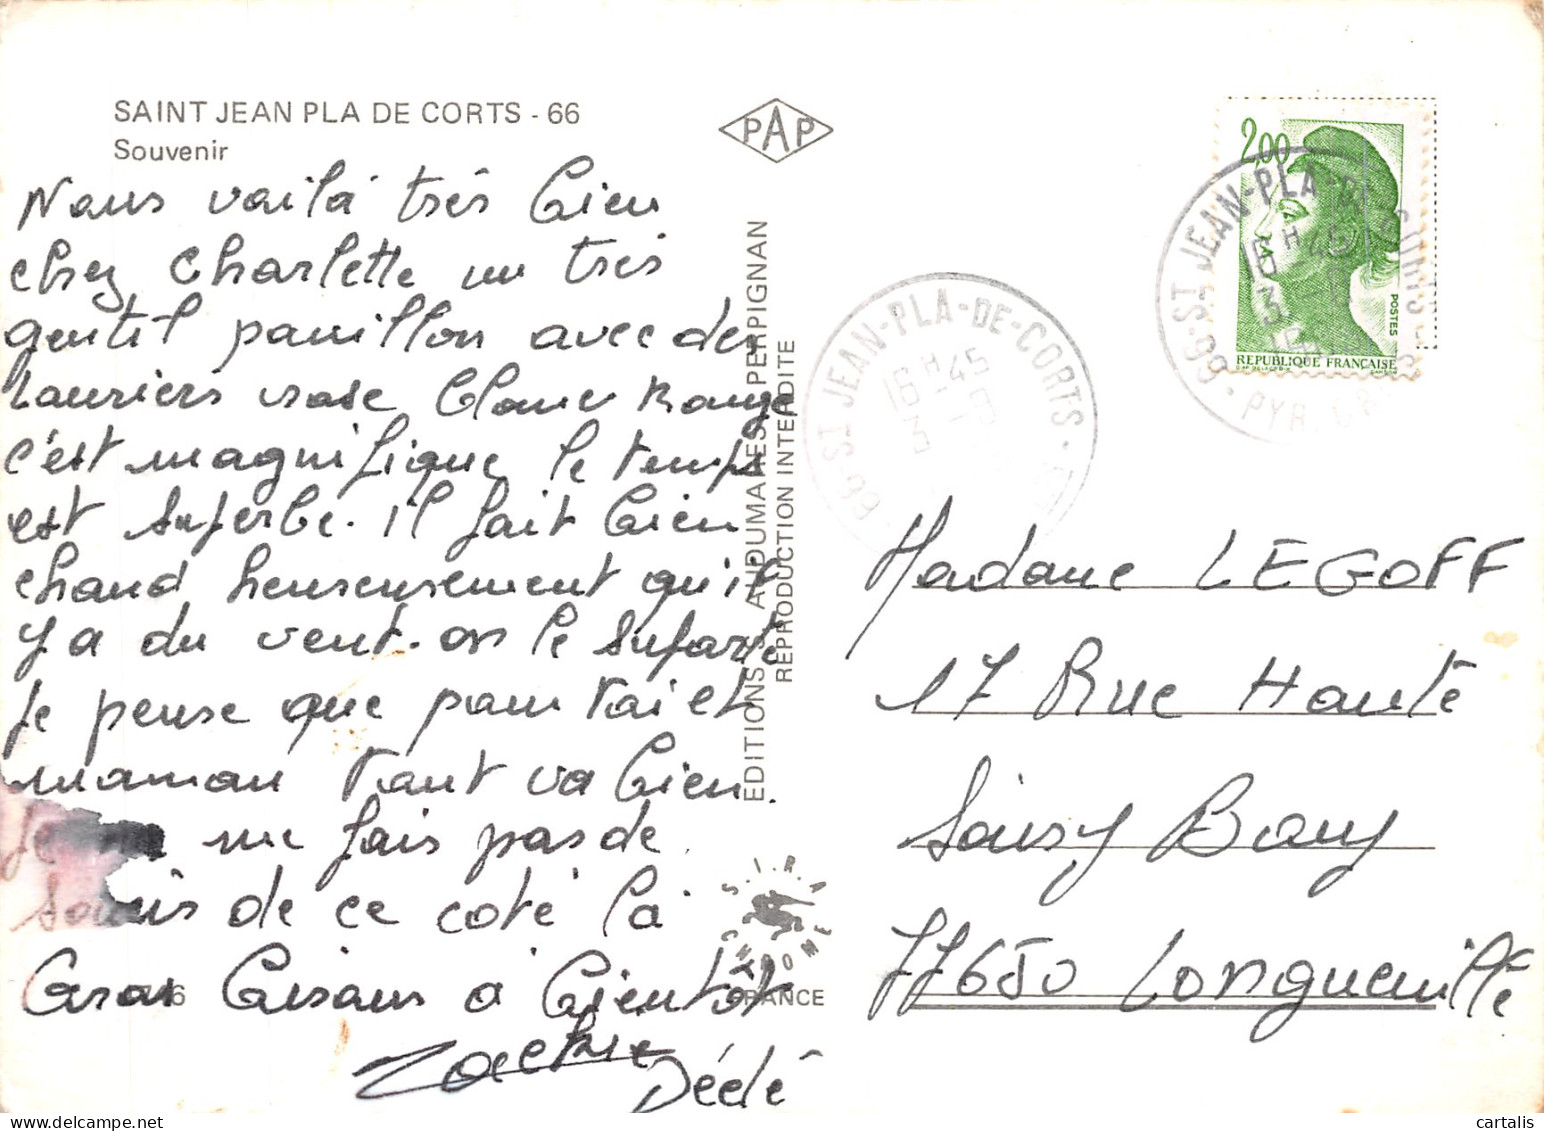 SAINT JEAN PLA DE CORTS - 66
Souvenir
PAP
Nous voilà très bien
chez Charlette un très
gentil pavillon avec des
Lauriers rose Blanc Rouge
c'est magnifique le temps
est superbe. il fait bien
chaud heureusement qu'il
y a du vent. on le suporte
Je pense que pour toi et
maman tout va bien.
Je me fais pas de
soucis de ce coté là
Gros Bisous à bientôt
Dédé
EDITIONS AUDUMARES PERPIGNAN
REPRODUCTION INTERDITE
S.I.R.A.
CHROME
FRANCE
66-ST JEAN-PLA-DE-CORTS
16 H 45
3
2,00
POSTES
REPUBLIQUE FRANÇAISE
66-ST JEAN-PLA-DE-CORTS
16 H 45
3
PYR. OR
Madame LEGOFF
17 Rue Haute
Soisy Bouy
77650 Longueville
delcampe.net
cartalis